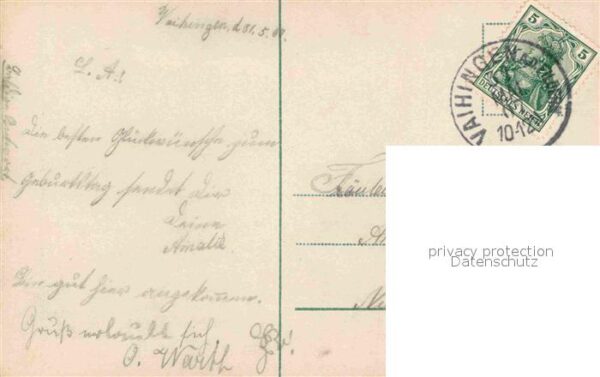 Vaihingen, d 31. 5. 09.
L. A.!
Die besten Glückwünsche zum
Geburtstag sendet Dir
Deine
Amalie
Bin gut hier angekommen.
Gruß erlaubt sich
O. Warth
5
DEUTSCHES REICH
VAIHINGEN
10-12
Fräulein
privacy protection
Datenschutz